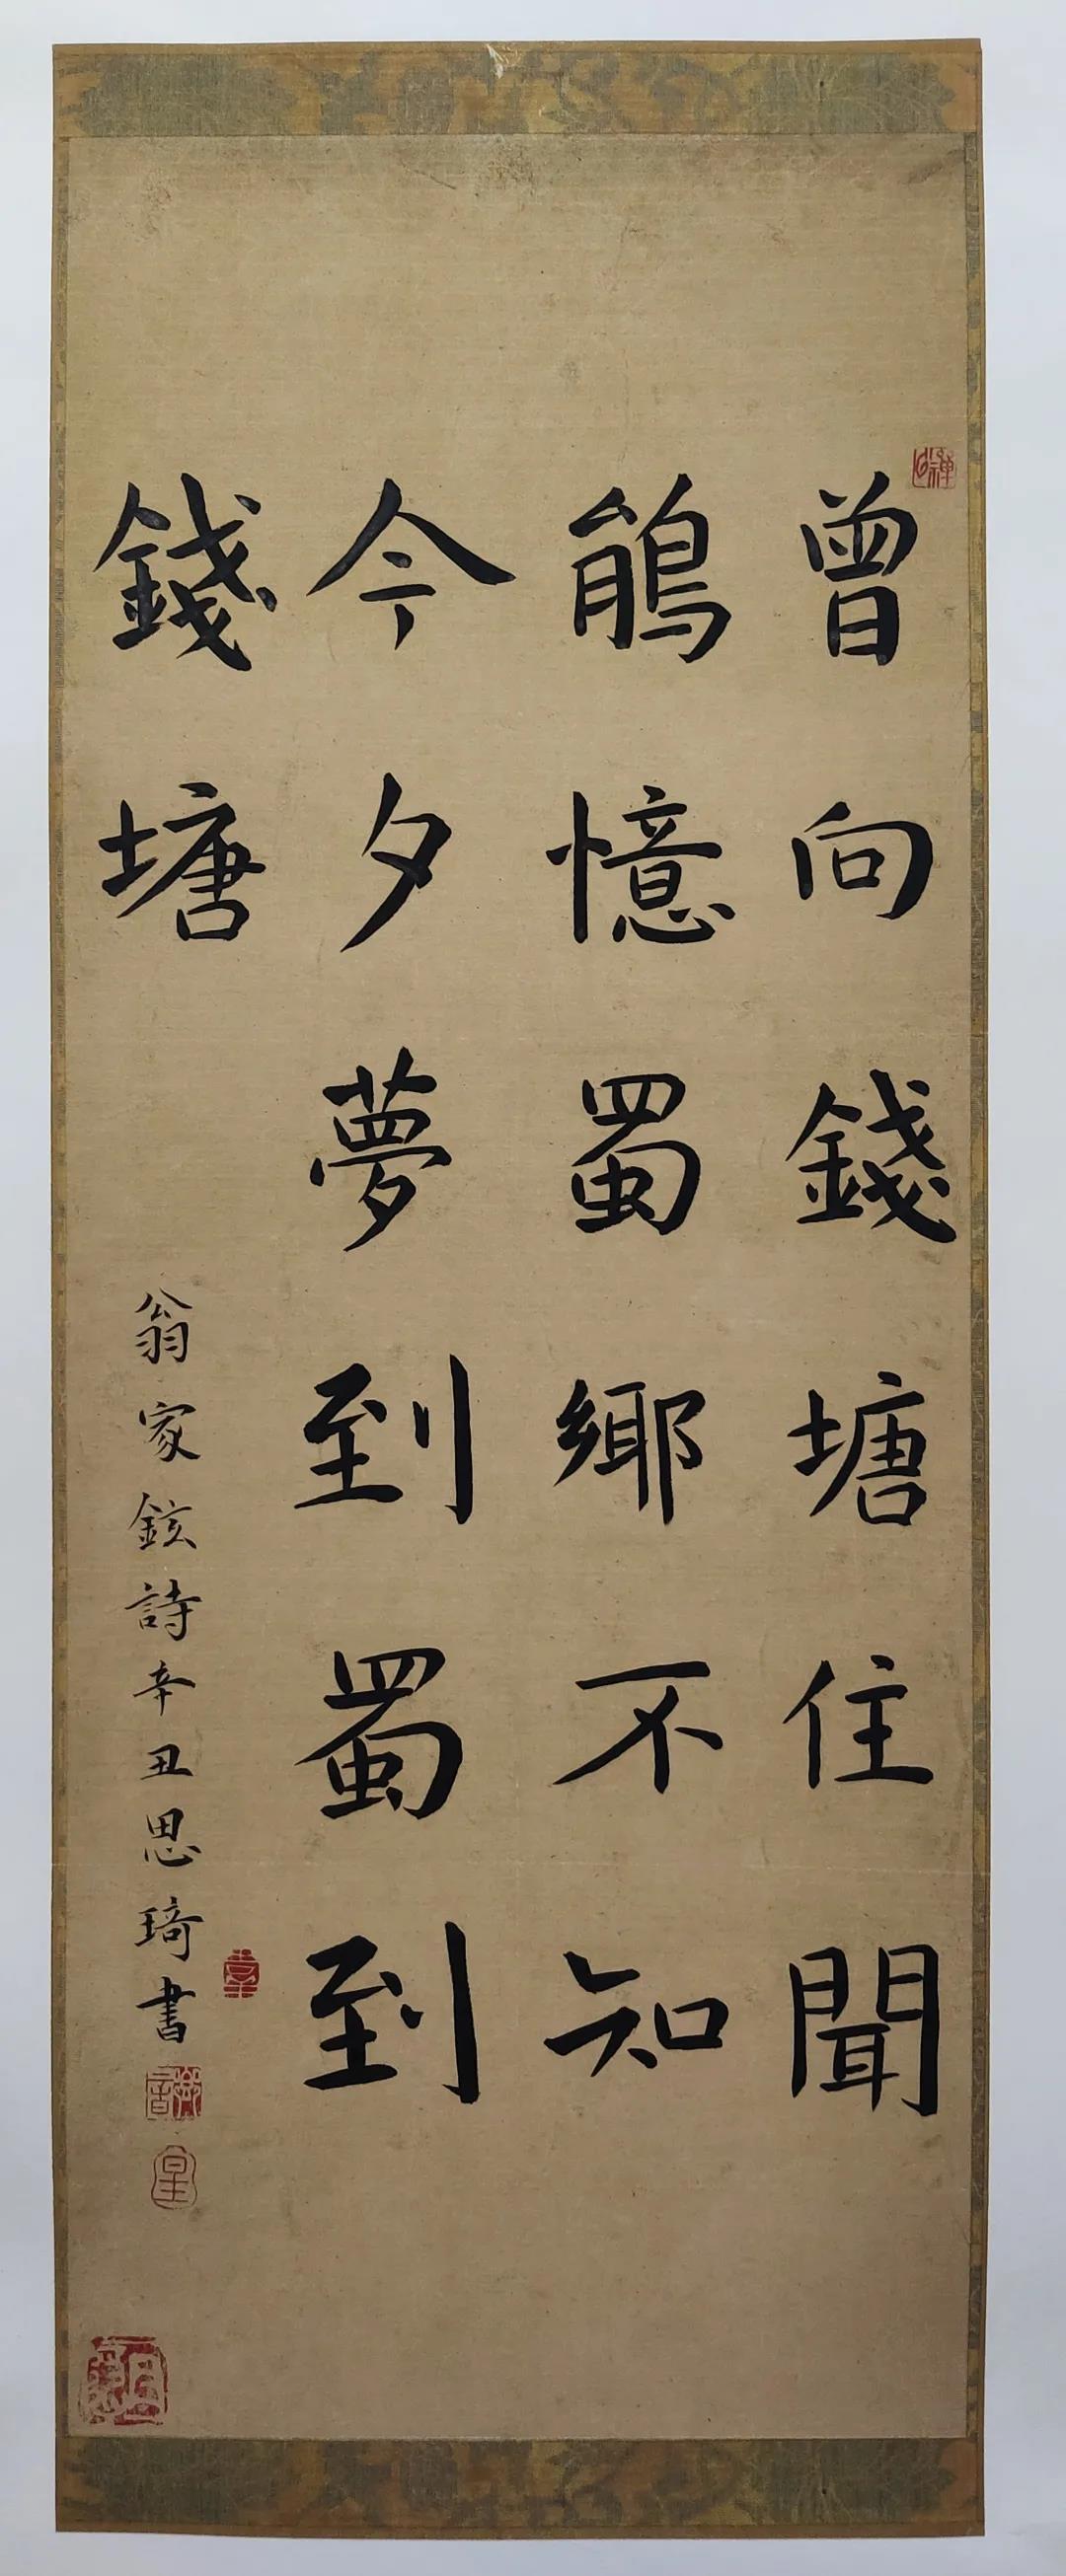 曾向錢塘住聞
鵑憶蜀鄉不知
今夕夢到蜀到
錢塘
翁家鉉詩辛丑思琦書